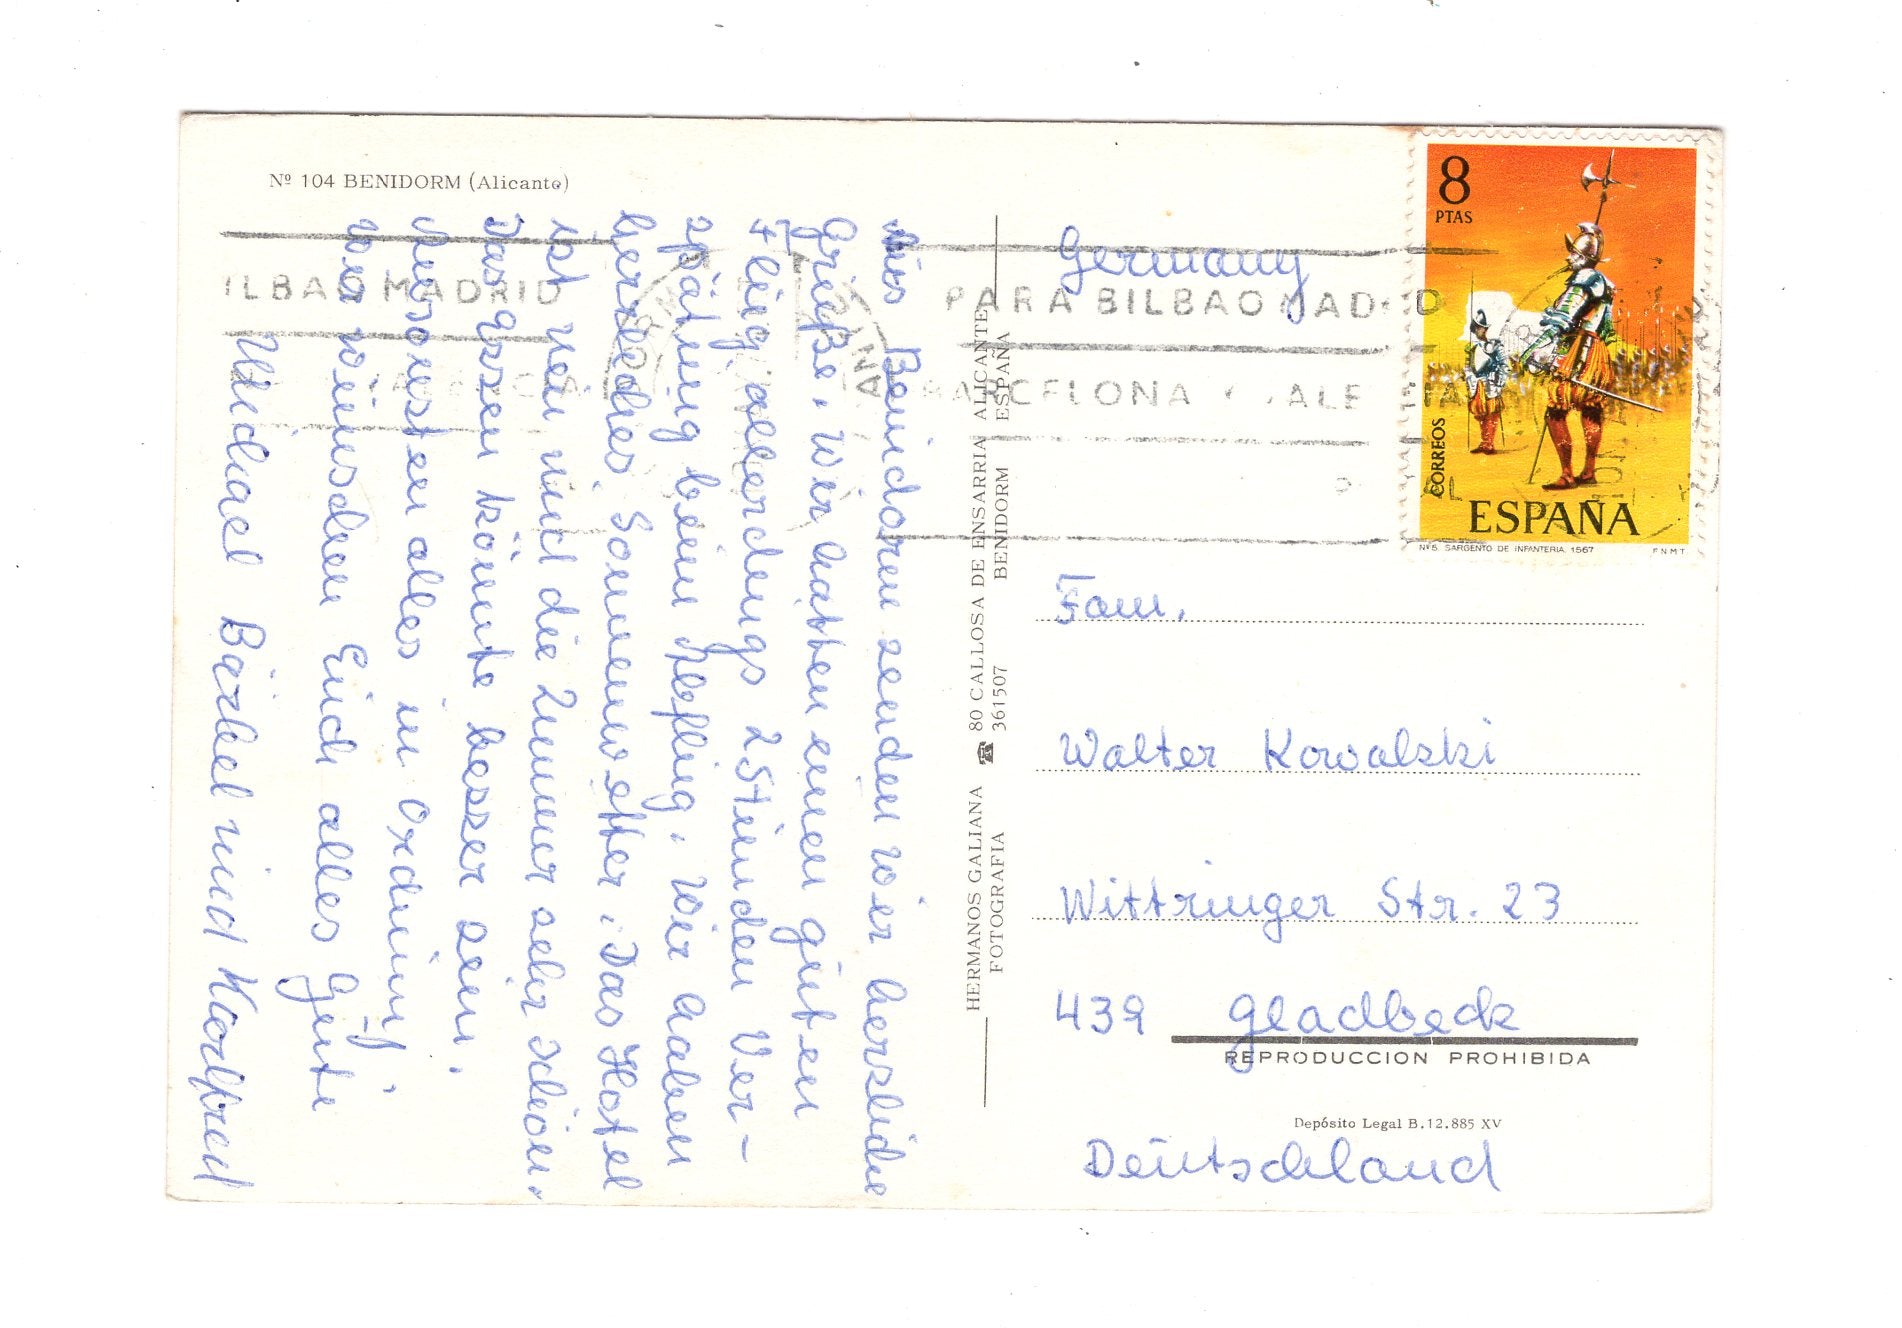 Nº 104 BENIDORM (Alicante)
Aus Benidorm senden wir herzliche
Grüße. Wir hatten einen guten
Flug allerdings 2 Stunden Ver-
spätung beim Abflug. Wir haben
herrliches Sonnenwetter. Das Hotel
ist neu und die Zimmer sehr schön.
Das Essen könnte besser sein.
Ansonsten alles in Ordnung.
Wir wünschen Euch alles Gute
Michael Bärbel und Karlfred
HERMANOS GALIANA ☎ 80 CALLOSA DE ENSARRIA ALICANTE
FOTOGRAFIA 361507 BENIDORM ESPAÑA
Germany
8
PTAS
CORREOS
ESPAÑA
Nº 5. SARGENTO DE INFANTERIA. 1567 F.N.M.T.
ILBAO MADRID
PARA BILBAO MADRID
BARCELONA
Fam.
Walter Kowalski
Wittringer Str. 23
439 Gladbeck
REPRODUCCION PROHIBIDA
Depósito Legal B.12.885 XV
Deutschland